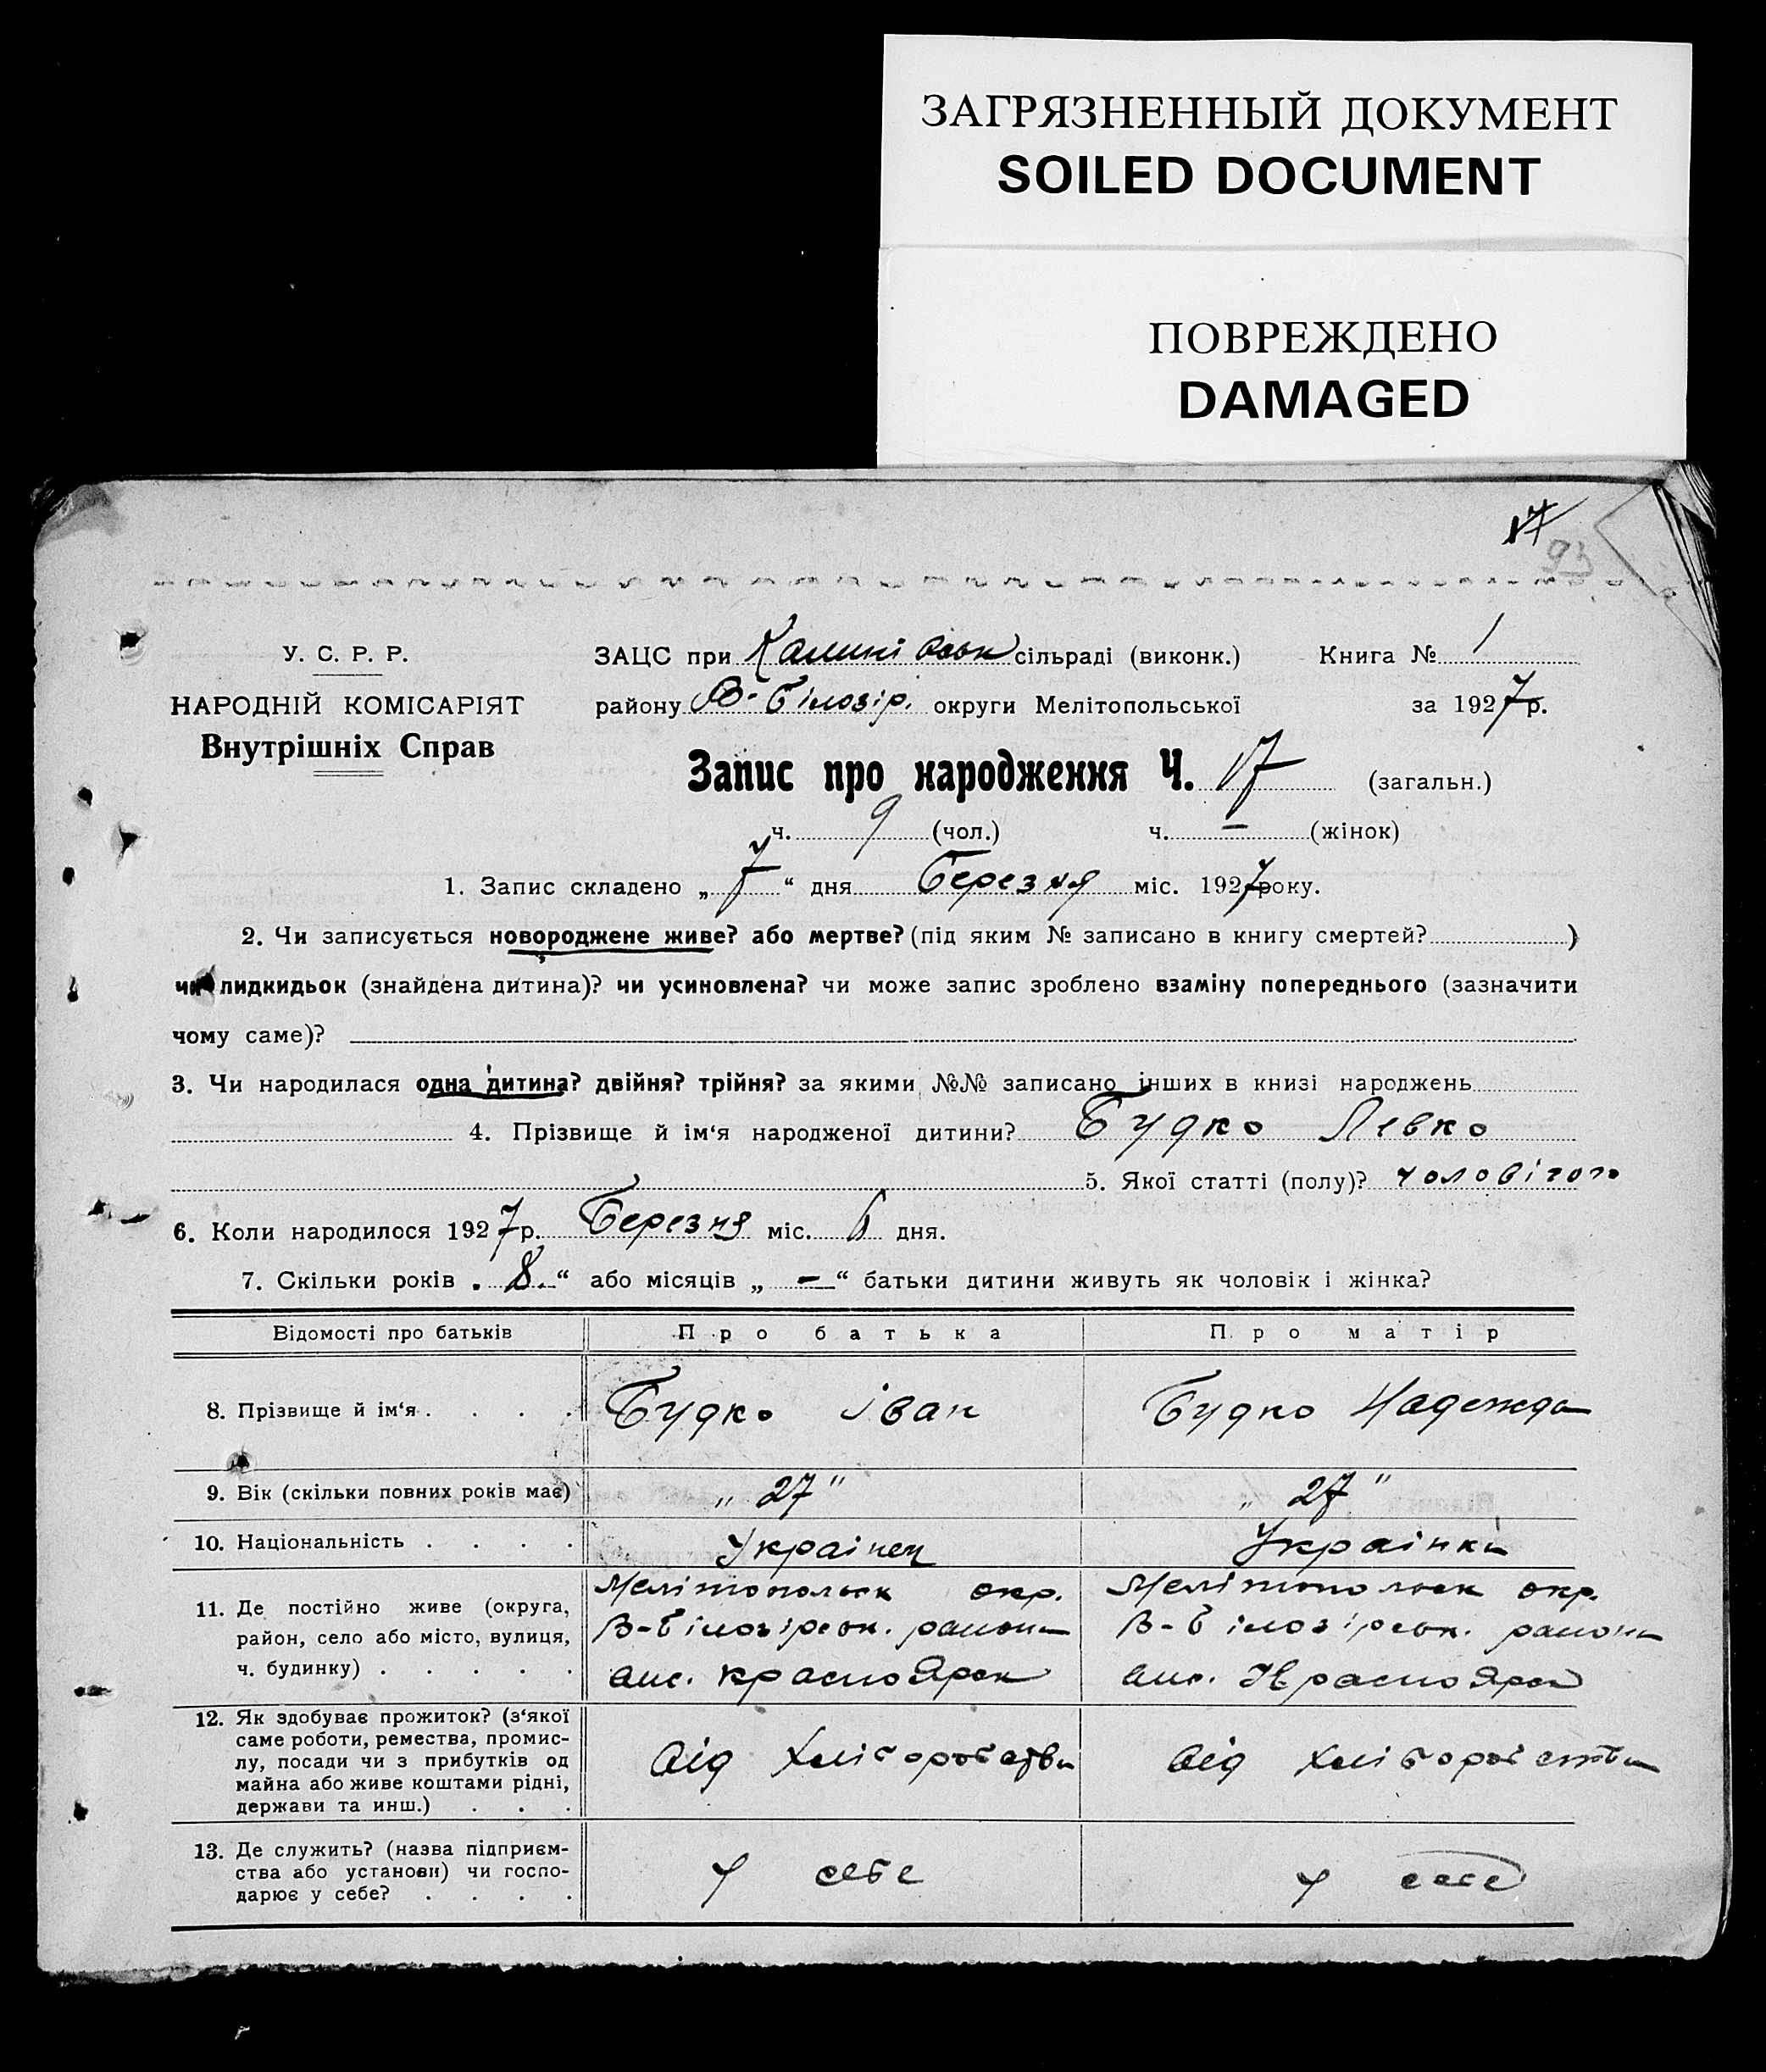 ЗАГРЯЗНЕННЫЙ ДОКУМЕНТ
SOILED DOCUMENT
ПОВРЕЖДЕНО
DAMAGED
17
93
У. С. Р. Р.
НАРОДНІЙ КОМІСАРІЯТ
Внутрішніх Справ
ЗАЦС при сільраді (виконк.) Книга № 1
району В-Білозір. округи Мелітопольської за 1927 р.
Запис про народження Ч. 17 (загальн.)
ч. 9 (чол.) ч. — (жінок)
1. Запис складено „ 7 “ дня Березня міс. 1927 року.
2. Чи записується новороджене живе? або мертве? (під яким № записано в книгу смертей? )
чи пидкидьок (знайдена дитина)? чи усиновлена? чи може запис зроблено взаміну попереднього (зазначити
чому саме)?
3. Чи народилася одна дитина? двійня? трійня? за якими №№ записано інших в книзі народжень
4. Прізвище й ім‘я народженої дитини? Будко Левко
5. Якої статті (полу)? чоловічого
6. Коли народилося 1927 р. Березня міс. 6 дня.
7. Скільки років „ 8. “ або місяців „ — “ батьки дитини живуть як чоловік і жінка?
Відомості про батьків Про батька Про матір
8. Прізвище й ім‘я . . . . Будко Іван Будко Надежда
9. Вік (скільки повних років має) „ 27 " „ 27 "
10. Національність . . . . Українец Українка
11. Де постійно живе (округа,
район, село або місто, вулиця,
ч. будинку) . . . . .
Мелітопольск окр.
В-Білозірськ. района
вис. красноярск
Мелітопольск окр.
В-Білозірськ. района
вис. Красноярск
12. Як здобуває прожиток? (з‘якої
саме роботи, ремества, промис-
лу, посади чи з прибутків од
майна або живе коштами рідні,
держави та инш.) . . .
від хліборобства
від хліборобства
13. Де служить? (назва підприєм-
ства або установи) чи госпо-
дарює у себе? . . . .
у себе
у себе